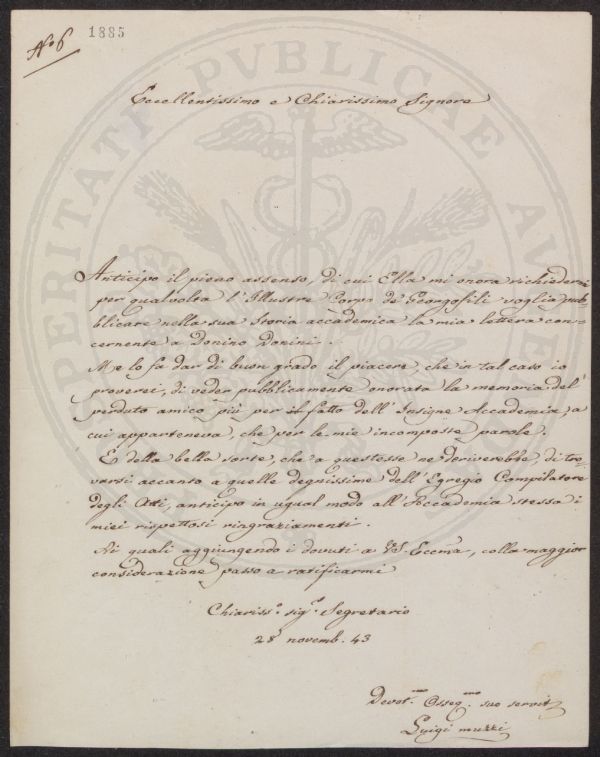 N.o 6 1885
PROSPERITATI PVBLICAE AVGENDAE
Eccellentissimo e Chiarissimo Signore
Anticipo il pieno assenso, di cui Ella mi onora richiedermi
per qualvolta l'Illustre Corpo de' Georgofili voglia pub-
blicare nella sua Storia accademica la mia lettera con-
cernente a Donino Donini.
Me lo fa dar di buon grado il piacere, che in tal caso io
proverei, di veder pubblicamente onorata la memoria del
perduto amico più per il fatto dell'Insigne Accademia, a
cui apparteneva, che per le mie incomposte parole.
E della bella sorte, che a quest'esse ne deriverebbe, di tro-
varsi accanto a quelle degnissime dell'Egregio Compilatore
degli Atti, anticipo in ugual modo all'Accademia stessa i
miei rispettosi ringraziamenti.
Ai quali aggiungendo i dovuti a V.S. Eccma, colla maggior
considerazione passo a ratificarmi
Chiariss.o sig.r Segretario
28 novemb. 43
Devot.mo Osseq.mo suo servit
Luigi Muzzi